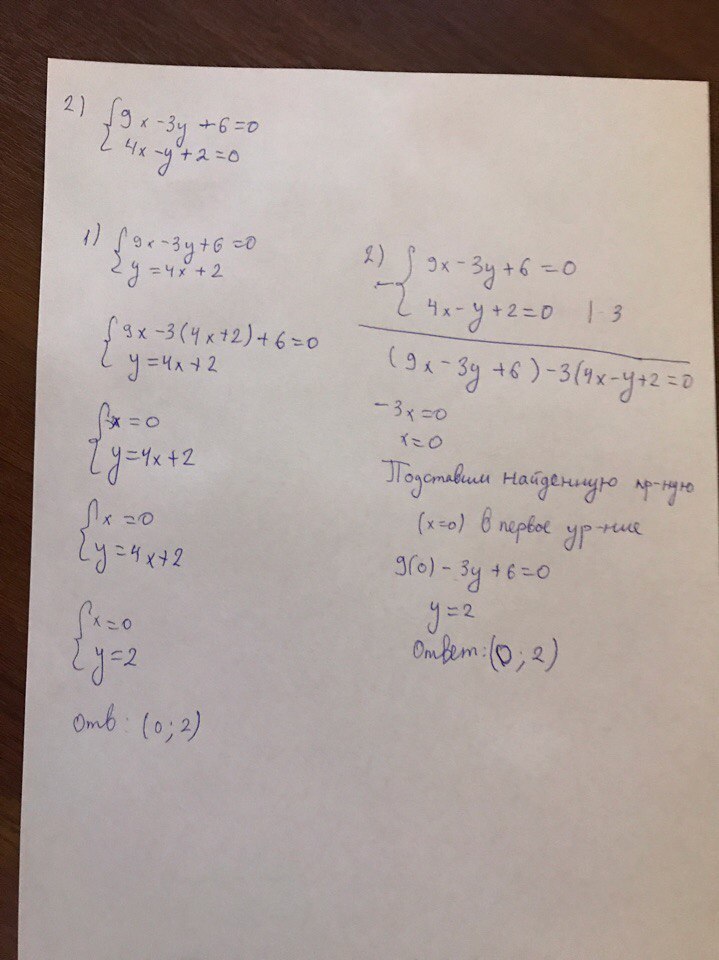 2) { 9x - 3y + 6 = 0
4x - y + 2 = 0
1) { 9x - 3y + 6 = 0
y = 4x + 2
{ 9x - 3(4x + 2) + 6 = 0
y = 4x + 2
{ x = 0
y = 4x + 2
{ x = 0
y = 4x + 2
{ x = 0
y = 2
Отв: (0; 2)
2) { 9x - 3y + 6 = 0
- 4x - y + 2 = 0 | · 3
(9x - 3y + 6) - 3(4x - y + 2 = 0
-3x = 0
x = 0
Подставим найденную пр-ную
(x=0) в первое ур-ние
9(0) - 3y + 6 = 0
y = 2
Ответ: (0; 2)